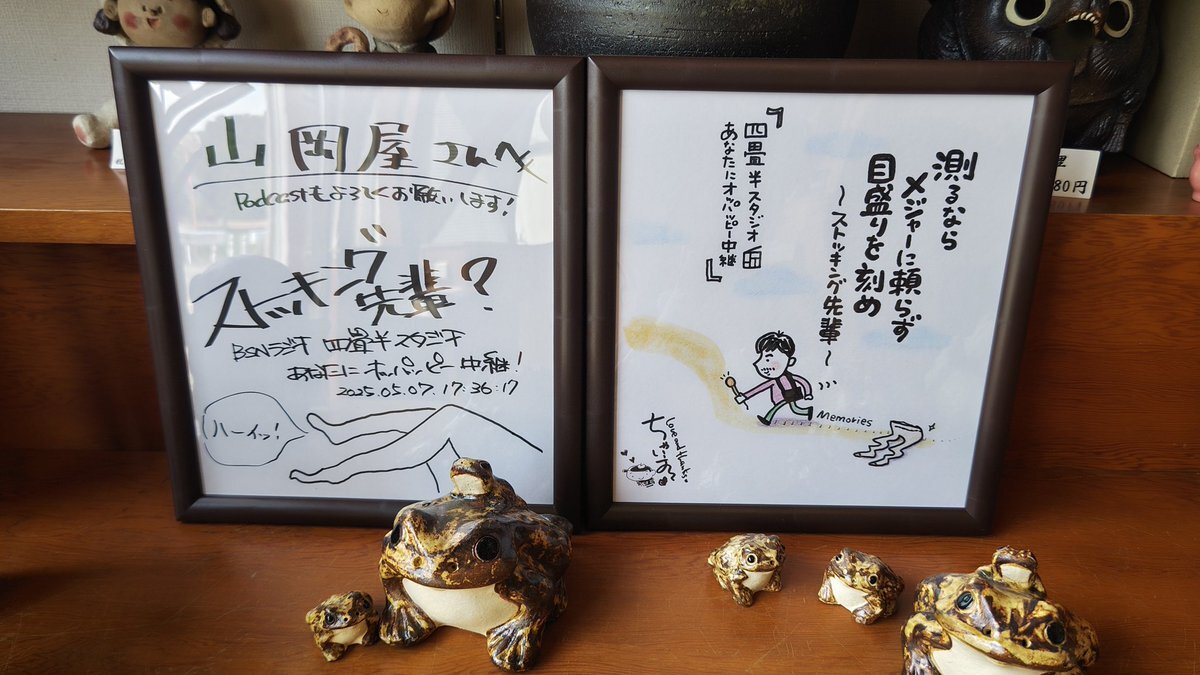 山岡屋さんへ
Podcastもよろしくお願いします!
ストッキング先輩?
BSNラジオ 四畳半スタジオ
あなたにオッパッピー中継!
2025.05.07.17:36:17
ハーイッ!
『四畳半スタジオ
あなたにオッパッピー中継』
測るなら
メジャーに頼らず
目盛りを刻め
〜ストッキング先輩〜
Memories
80円